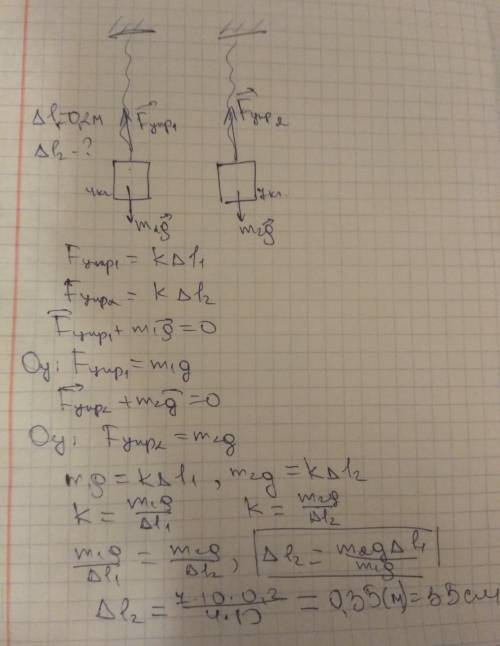 Fупр₁ Fупр₂
Δl₁=0,2м
Δl₂ - ?
4кг 7кг
m₁g m₂g
Fупр₁ = kΔl₁
Fупр₂ = kΔl₂
Fупр₁ + m₁g = 0
Oy: Fупр₁ = m₁g
Fупр₂ + m₂g = 0
Oy: Fупр₂ = m₂g
m₁g = kΔl₁, m₂g = kΔl₂
k = m₁g/Δl₁ k = m₂g/Δl₂
m₁g/Δl₁ = m₂g/Δl₂, Δl₂ = m₂gΔl₁/m₁g
Δl₂ = 7·10·0,2/4·10 = 0,35(м) = 35 см